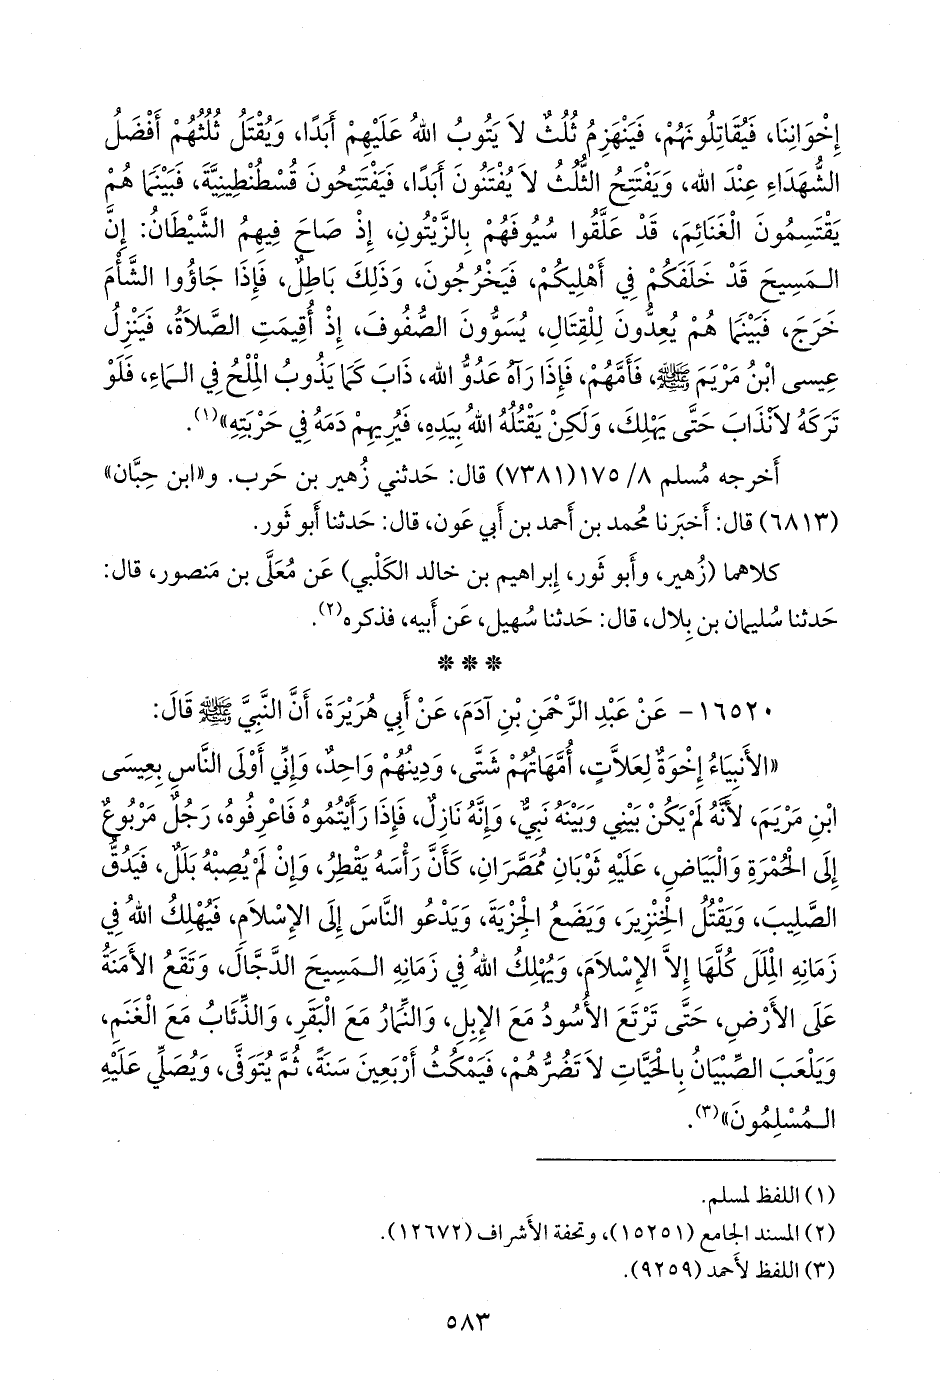 إِخْوَانِنَا، فَيُقَاتِلُونَهُمْ، فَيَنْهَزِمُ ثُلُثٌ لاَ يَتُوبُ اللهُ عَلَيْهِمْ أَبَدًا، وَيُقْتَلُ ثُلُثُهُمْ أَفْضَلُ
الشُّهَدَاءِ عِنْدَ الله، وَيَفْتَتِحُ الثُّلُثُ لاَ يُفْتَنُونَ أَبَدًا، فَيَفْتَتِحُونَ قُسْطُنْطِينِيَّةَ، فَبَيْنَمَا هُمْ
يَقْتَسِمُونَ الْغَنَائِمَ، قَدْ عَلَّقُوا سُيُوفَهُمْ بِالزَّيْتُونِ، إِذْ صَاحَ فِيهِمُ الشَّيْطَانُ: إِنَّ
الـمَسِيحَ قَدْ خَلَفَكُمْ فِي أَهْلِيكُمْ، فَيَخْرُجُونَ، وَذَلِكَ بَاطِلٌ، فَإِذَا جَاؤُوا الشَّأْمَ
خَرَجَ، فَبَيْنَمَا هُمْ يُعِدُّونَ لِلْقِتَالِ، يُسَوُّونَ الصُّفُوفَ، إِذْ أُقِيمَتِ الصَّلاَةُ، فَيَنْزِلُ
عِيسى ابْنُ مَرْيَمَ ﷺ، فَأَمَّهُمْ، فَإِذَا رَآهُ عَدُوُّ الله، ذَابَ كَمَا يَذُوبُ الْمِلْحُ فِي الـمَاءِ، فَلَوْ
تَرَكَهُ لاَنْذَابَ حَتَّى يَهْلِكَ، وَلَكِنْ يَقْتُلُهُ اللهُ بِيَدِهِ، فَيُرِيهِمْ دَمَهُ فِي حَرْبَتِهِ»(١).
أَخرجه مُسلم ٨/ ١٧٥(٧٣٨١) قال: حَدثني زُهير بن حَرب. و«ابن حِبَّان»
(٦٨١٣) قال: أَخبَرنا مُحمد بن أَحمد بن أَبي عَون، قال: حَدثنا أَبو ثَور.
كلاهما (زُهير، وأَبو ثَور، إِبراهيم بن خالد الكَلْبي) عَن مُعَلَّى بن مَنصور، قال:
حَدثنا سُليمان بن بِلال، قال: حَدثنا سُهيل، عَن أَبيه، فذكره(٢).
* * *
١٦٥٢٠- عَنْ عَبْدِ الرَّحْمَنِ بْنِ آدَمَ، عَنْ أَبِي هُرَيْرَةَ، أَنَّ النَّبِيَّ ﷺ قَالَ:
«الأَنبِيَاءُ إِخْوَةٌ لِعَلاَّتٍ، أُمَّهَاتُهُمْ شَتَّى، وَدِينُهُمْ وَاحِدٌ، وَإِنِّي أَوْلَى النَّاسِ بِعِيسَى
ابْنِ مَرْيَمَ، لأَنَّهُ لَمْ يَكُنْ بَيْنِي وَبَيْنَهُ نَبِيٌّ، وَإِنَّهُ نَازِلٌ، فَإِذَا رَأَيْتُمُوهُ فَاعْرِفُوهُ، رَجُلٌ مَرْبُوعٌ
إِلَى الْحُمْرَةِ وَالْبَيَاضِ، عَلَيْهِ ثَوْبَانِ مُمَصَّرَانِ، كَأَنَّ رَأْسَهُ يَقْطِرُ، وَإِنْ لَمْ يُصِبْهُ بَلَلٌ، فَيَدُقُّ
الصَّلِيبَ، وَيَقْتُلُ الْخِنْزِيرَ، وَيَضَعُ الْجِزْيَةَ، وَيَدْعُو النَّاسَ إِلَى الإِسْلاَمِ، فَيُهْلِكُ اللهُ فِي
زَمَانِهِ الْمِلَلَ كُلَّهَا إِلاَّ الإِسْلاَمَ، وَيُهْلِكُ اللهُ فِي زَمَانِهِ الـمَسِيحَ الدَّجَّالَ، وَتَقَعُ الأَمَنَةُ
عَلَى الأَرْضِ، حَتَّى تَرْتَعَ الأُسُودُ مَعَ الإِبِلِ، وَالنِّمَارُ مَعَ الْبَقَرِ، وَالذِّئَابُ مَعَ الْغَنَمِ،
وَيَلْعَبَ الصِّبْيَانُ بِالْحَيَّاتِ لاَ تَضُرُّهُمْ، فَيَمْكُثُ أَرْبَعِينَ سَنَةً، ثُمَّ يُتَوَفَّى، وَيُصَلِّي عَلَيْهِ
الـمُسْلِمُونَ»(٣).
(١) اللفظ لمسلم.
(٢) المسند الجامع (١٥٢٥١)، وتحفة الأَشراف (١٢٦٧٢).
(٣) اللفظ لأَحمد (٩٢٥٩).
٥٨٣